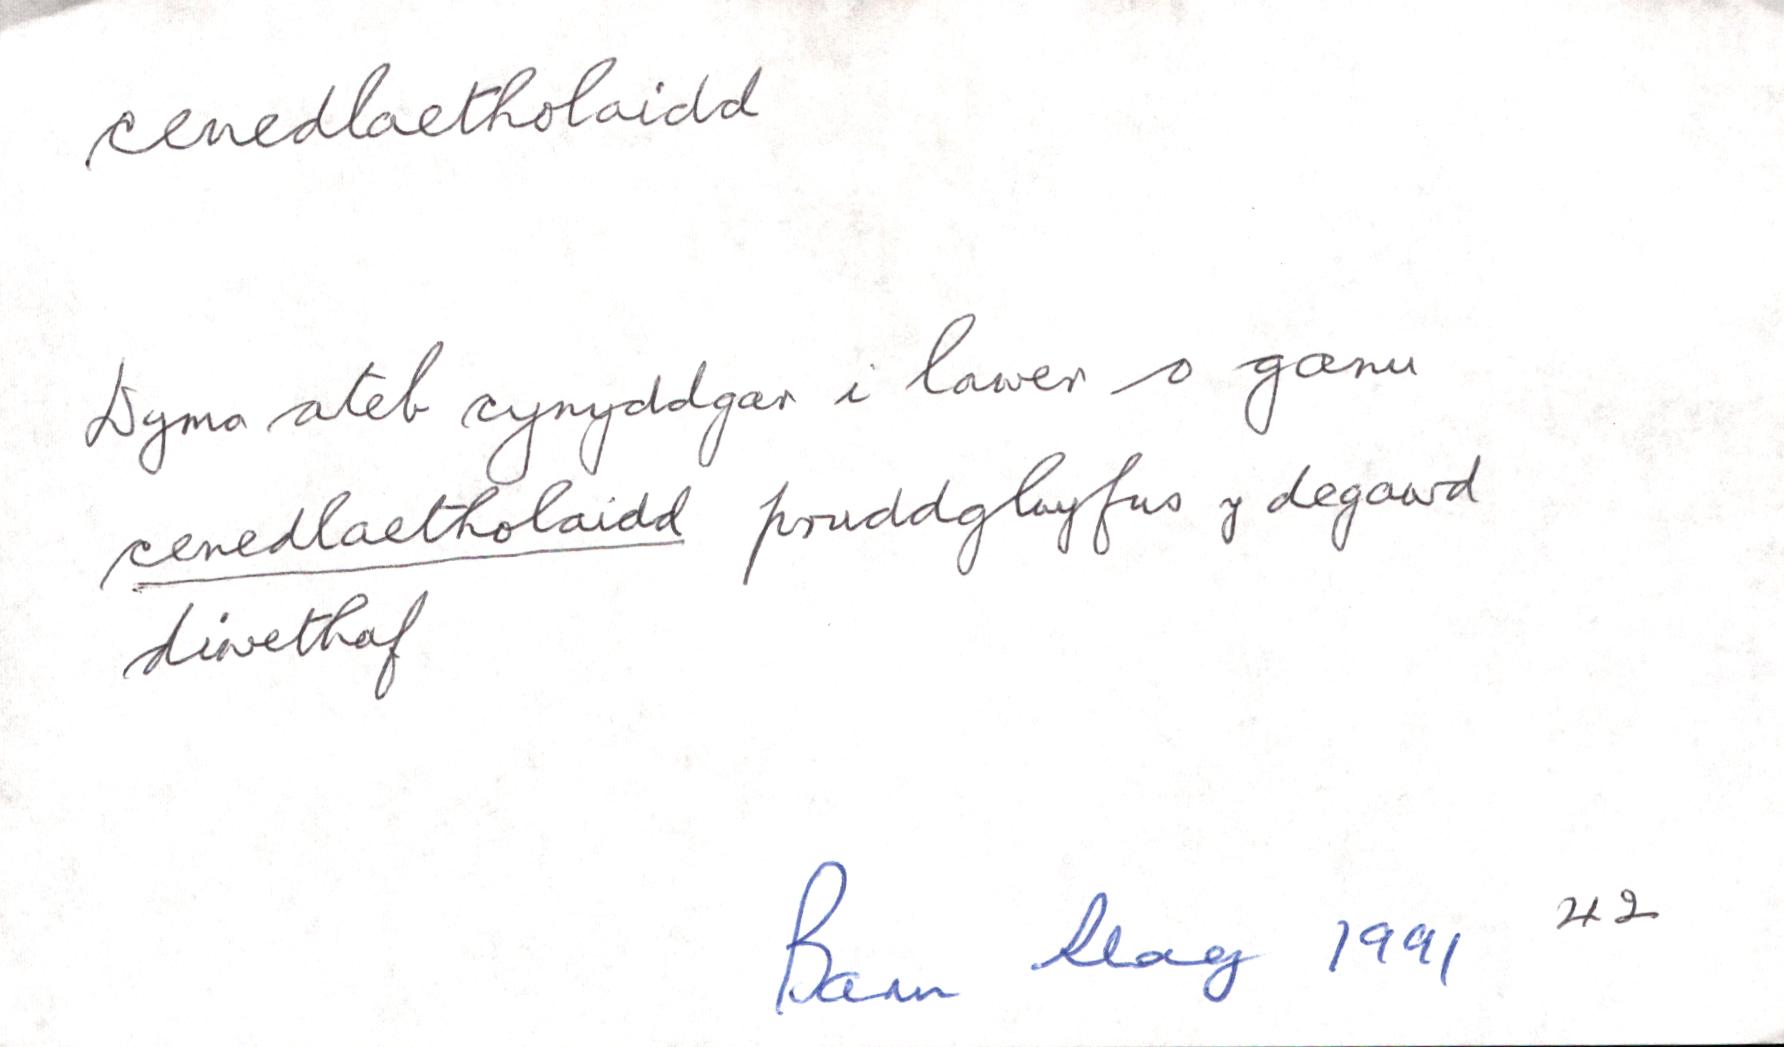 cenedlaetholaidd
Dyma ateb cynyddgar i lawer o ganu
cenedlaetholaidd pruddglwyfus y degawd
diwethaf
Barn Rhag 1991 42